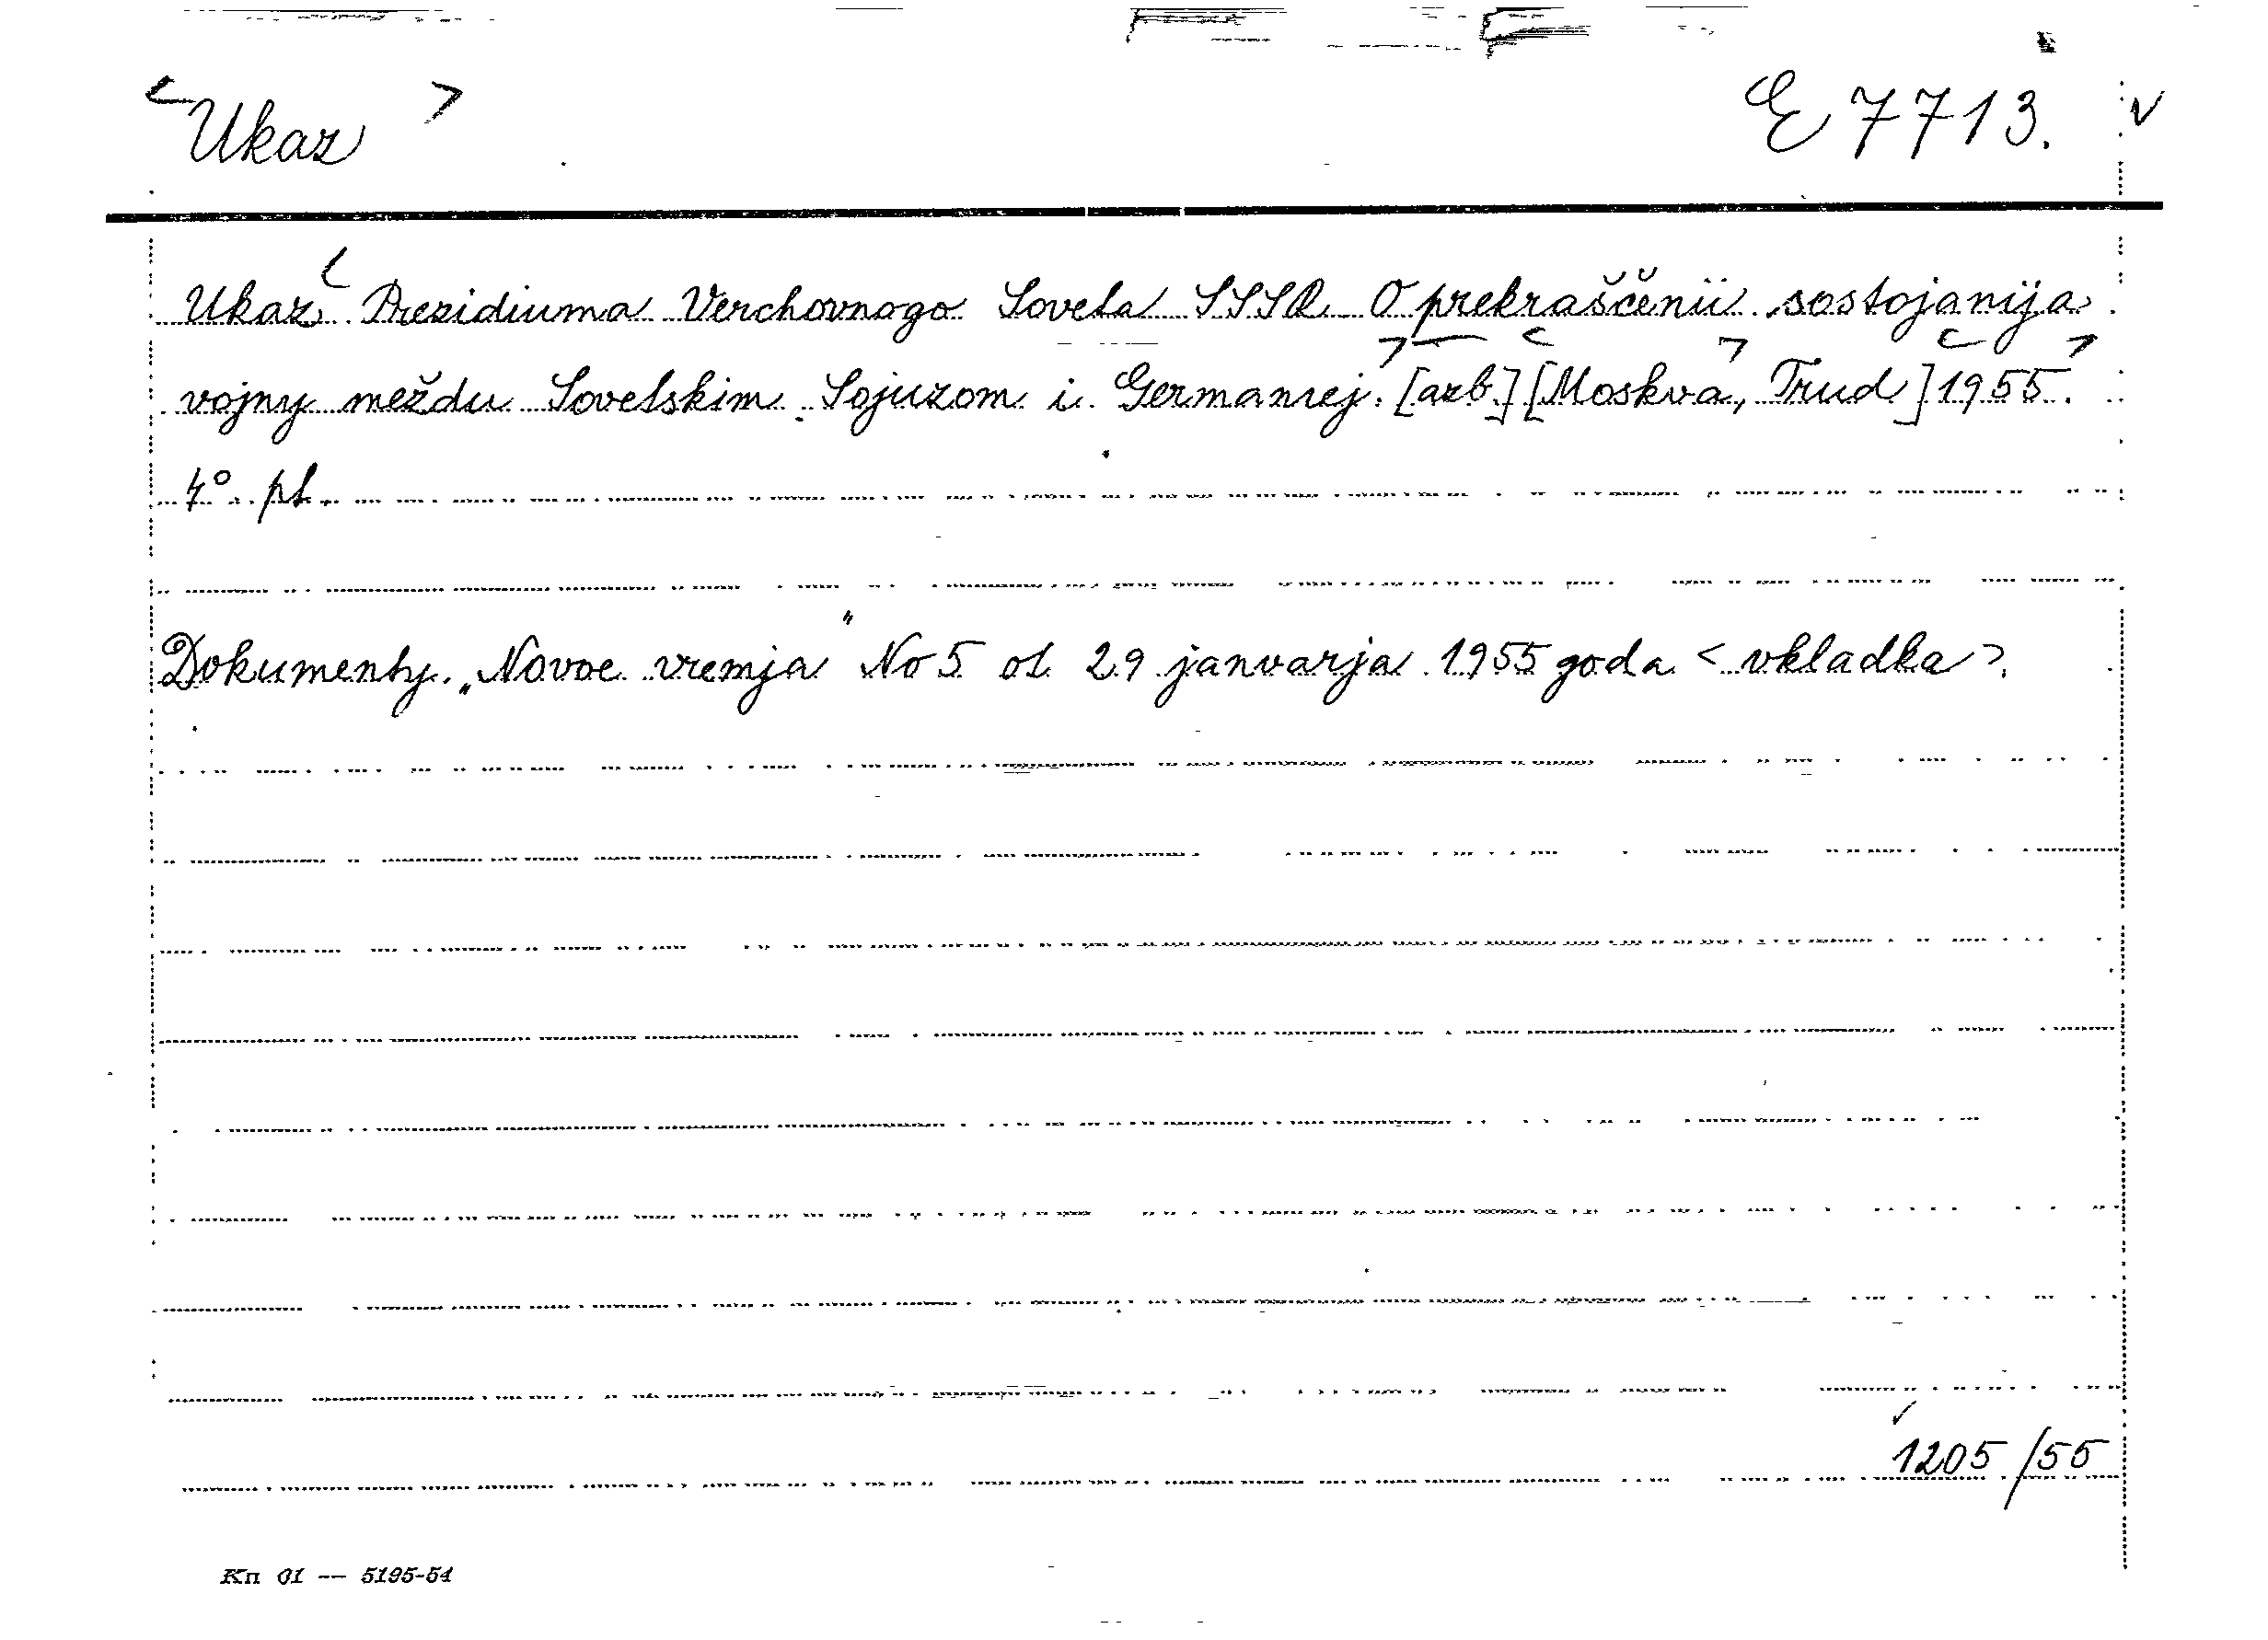 <Ukaz> E 7713.
Ukaz Prezidiuma Verchovnogo Soveta SSSR O prekraščenii sostojanija
vojny meždu Sovetskim Sojuzom i Germaniej. [azb.] [Moskva, Trud] 1955.
4°. pl.
Dokumenty. „Novoe vremja" No 5 ot 29 janvarja 1955 goda <vkladka>.
1205/55
Kn 01 — 5195-54